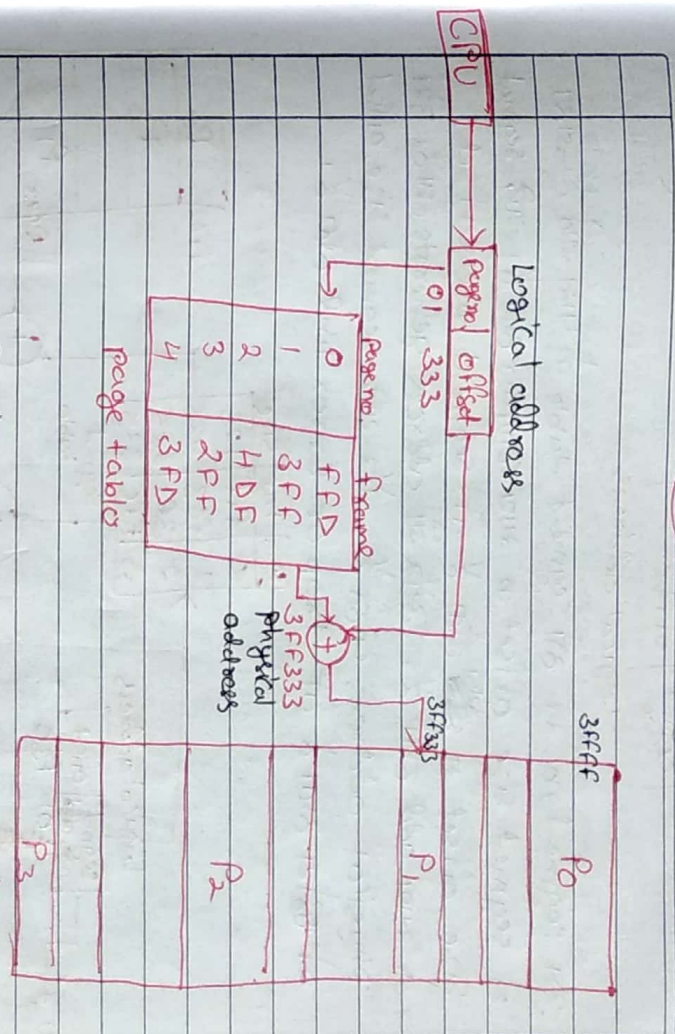 CPU
Logical address
page no offset
01 333
page no. frame
0 FFD
1 3FF
2 4DF
3 2FF
4 3FD
page table
3FF333
physical
address
+
3FF333
3ffff
P0
P1
P2
P3